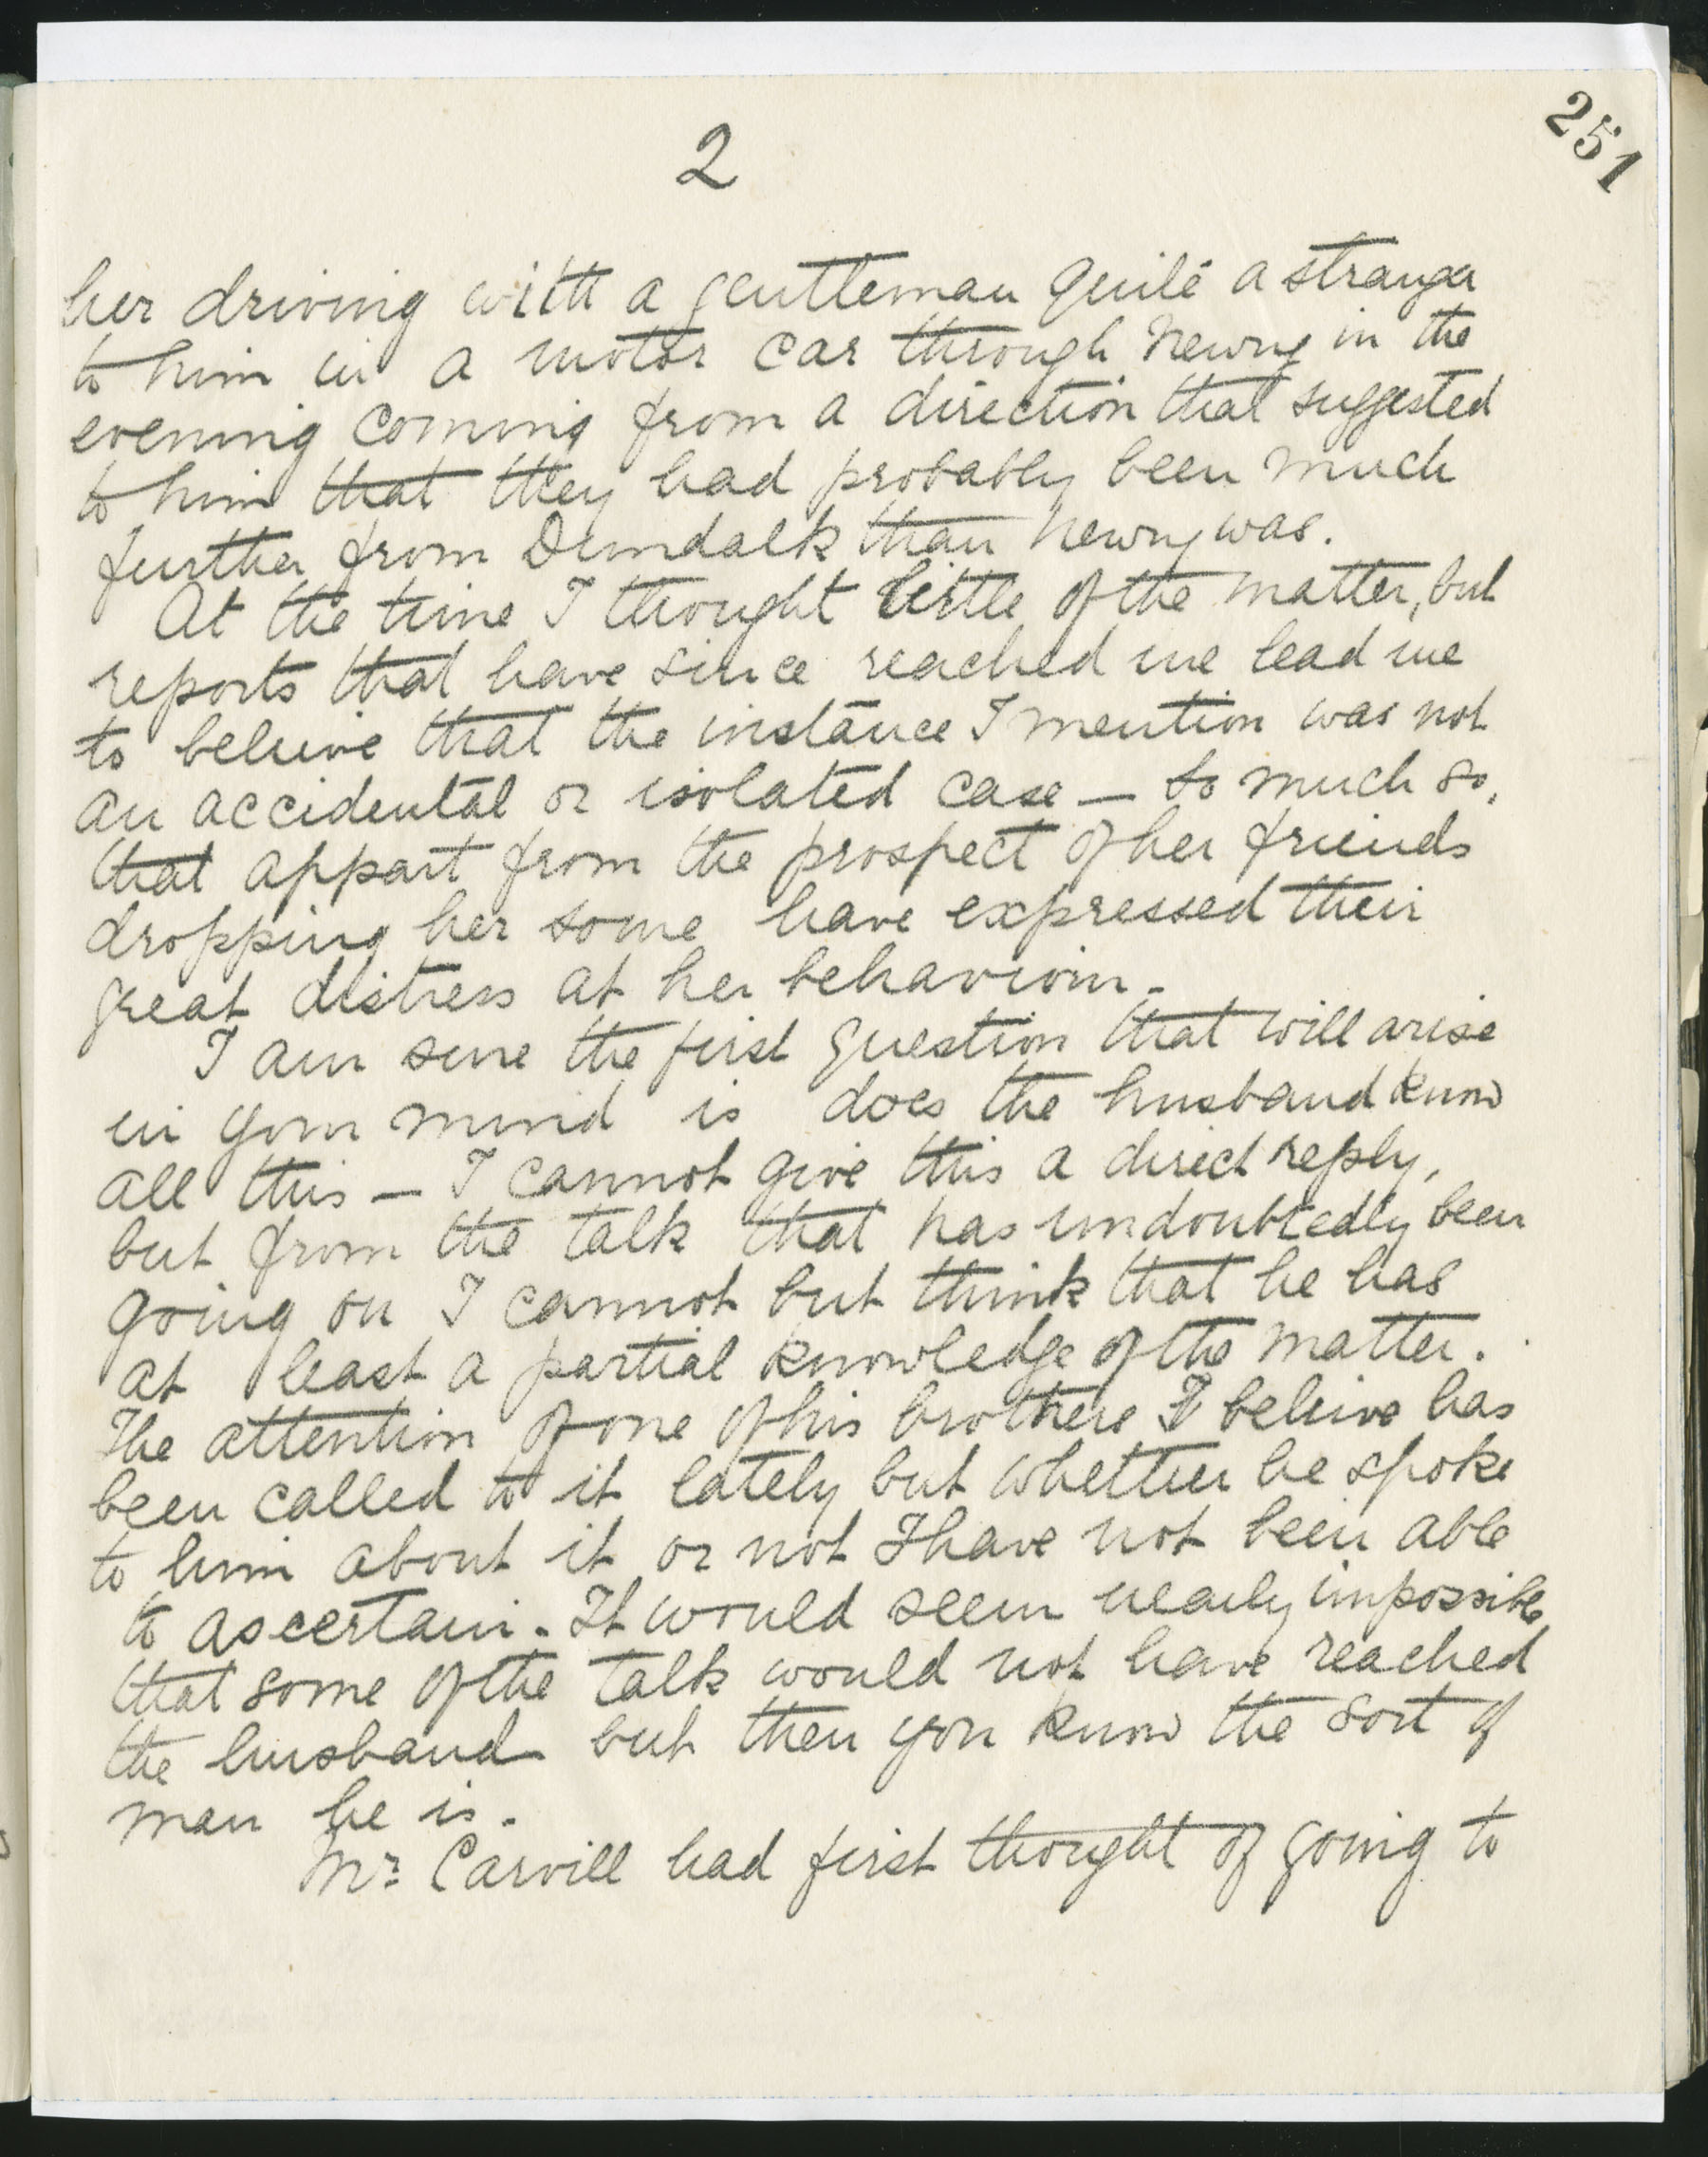 251
2
her driving with a gentleman quite a stranger
to him in a motor car through Newry in the
evening coming from a direction that suggested
to him that they had probably been much
further from Dundalk than Newry was.
At the time I thought little of the matter, but
reports that have since reached me lead me
to beleive that the instance I mention was not
an accidental or isolated case — so much so,
that appart from the prospect of her friends
dropping her some have expressed their
great distress at her behaviour.
I am sure the first question that will arise
in your mind is does the husband know
all this — I cannot give this a direct reply,
but from the talk that has undoubtedly been
going on I cannot but think that he has
at least a partial knowledge of the matter.
The attention of one of his brothers I beleive has
been called to it lately but whether he spoke
to him about it or not I have not been able
to ascertain. It would seem nearly impossible
that some of the talk would not have reached
the husband but then you know the sort of
man he is.
Mr. Carvill had first thought of going to